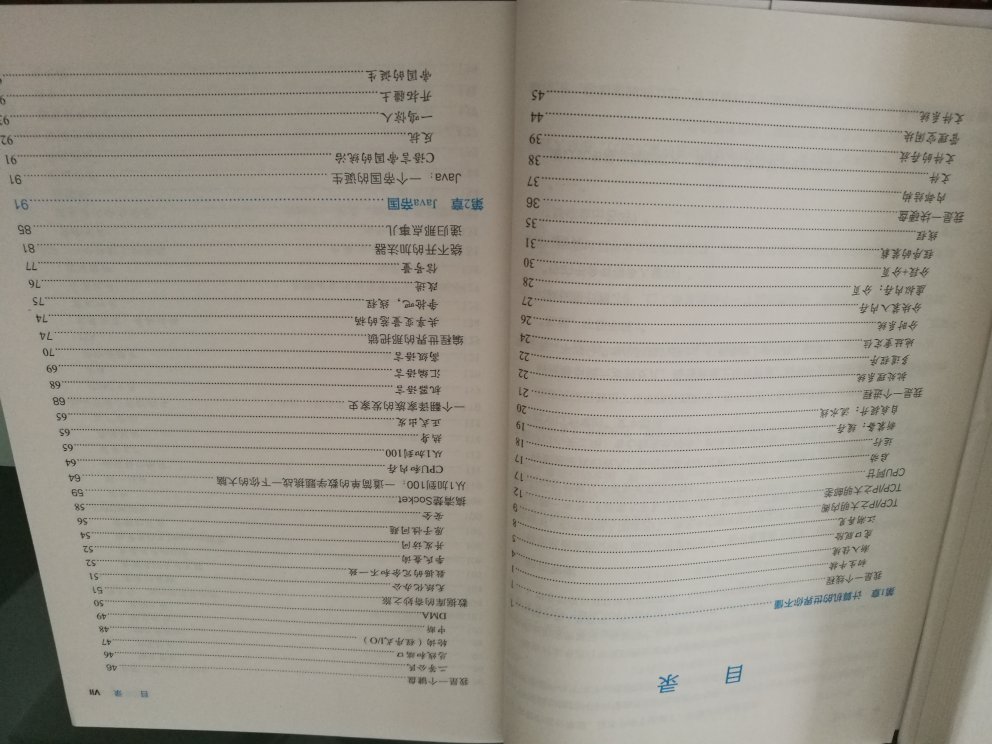 目 录
第1章 计算机的世界你不懂 1
我是一个线程 1
初生牛犊 1
渐入佳境 4
虎口脱险 5
江湖再见 8
TCP/IP之大明内阁 9
TCP/IP之大明邮差 12
CPU阿甘 17
启动 17
运行 18
新装备：缓存 19
自我提升：流水线 20
我是一个进程 21
批处理系统 22
多道程序 22
地址重定位 24
分时系统 26
分块装入内存 27
虚拟内存：分页 28
分段+分页 30
程序的装载 31
线程 35
我是一块硬盘 36
内部结构 37
文件 38
文件的存放 39
管理空闲块 44
文件系统 45
目 录 VII
我是一个键盘 46
二等公民 46
总线和端口 47
轮询（程序式I/O） 48
中断 49
DMA 50
数据库的奇妙之旅 51
无纸化办公 51
数据的冗余和不一致 52
李氏查询 52
并发访问 54
原子性问题 56
安全 58
搞清楚Socket 59
从1加到100：一道简单的数学题挑战一下你的大脑 64
CPU和内存 64
从1加到100 65
热身 65
正式出发 65
一个翻译家族的发家史 68
机器语言 68
汇编语言 69
高级语言 70
编程世界的那把锁 74
共享变量惹的祸 74
争抢吧，线程 75
改进 76
信号量 77
绕不开的加法器 81
递归那点事儿 85
第2章 Java帝国 91
Java：一个帝国的诞生 91
C语言帝国的统治 91
反抗 92
一鸣惊人 93
开拓疆土
帝国的诞生